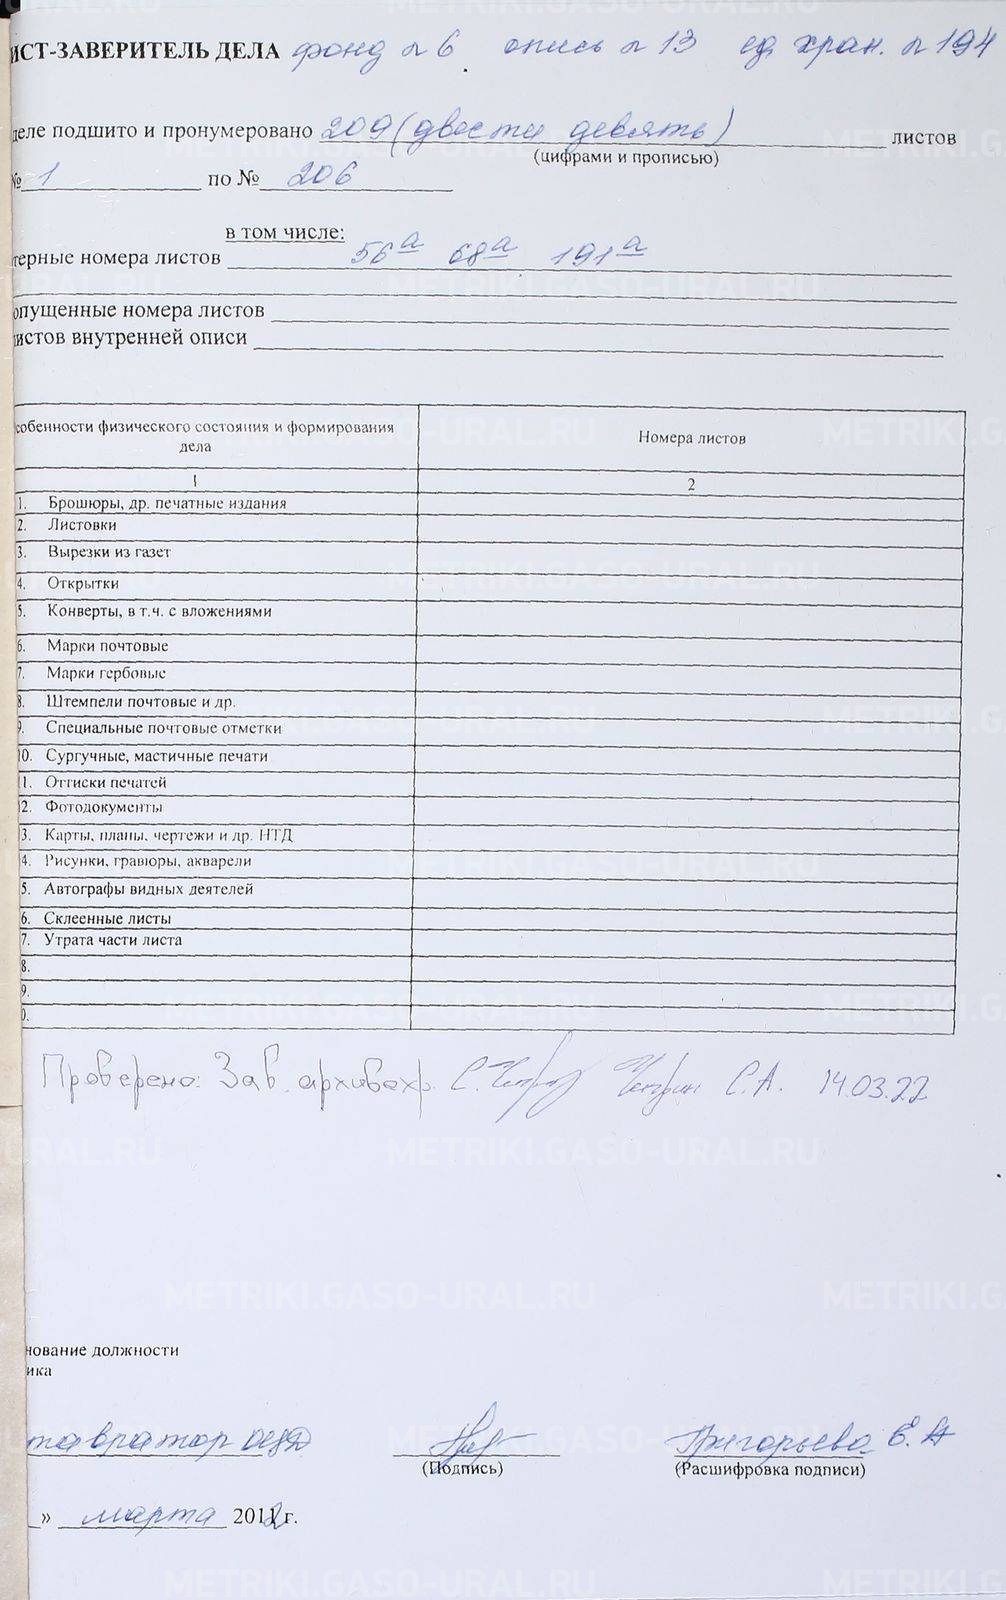 ИСТ-ЗАВЕРИТЕЛЬ ДЕЛА фонд № 6 опись № 13 ед хран. № 194
деле подшито и пронумеровано 209 (двести девять) листов
(цифрами и прописью)
№ 1 по № 206
в том числе:
терные номера листов 56а 68а 191а
опущенные номера листов
листов внутренней описи
собенности физического состояния и формирования дела Номера листов
1 2
1. Брошюры, др. печатные издания
2. Листовки
3. Вырезки из газет
4. Открытки
5. Конверты, в т.ч. с вложениями
6. Марки почтовые
7. Марки гербовые
8. Штемпели почтовые и др.
9. Специальные почтовые отметки
10. Сургучные, мастичные печати
1. Оттиски печатей
2. Фотодокументы
3. Карты, планы, чертежи и др. НТД
4. Рисунки, гравюры, акварели
5. Автографы видных деятелей
6. Склеенные листы
7. Утрата части листа
8.
9.
0.
Проверено: Зав. архивохр. С.А. 14.03.22
нование должности
ика
ставратор Григорьева Е.А
(Подпись) (Расшифровка подписи)
» марта 2012 г.
METRIKI.GASO-URAL.RU